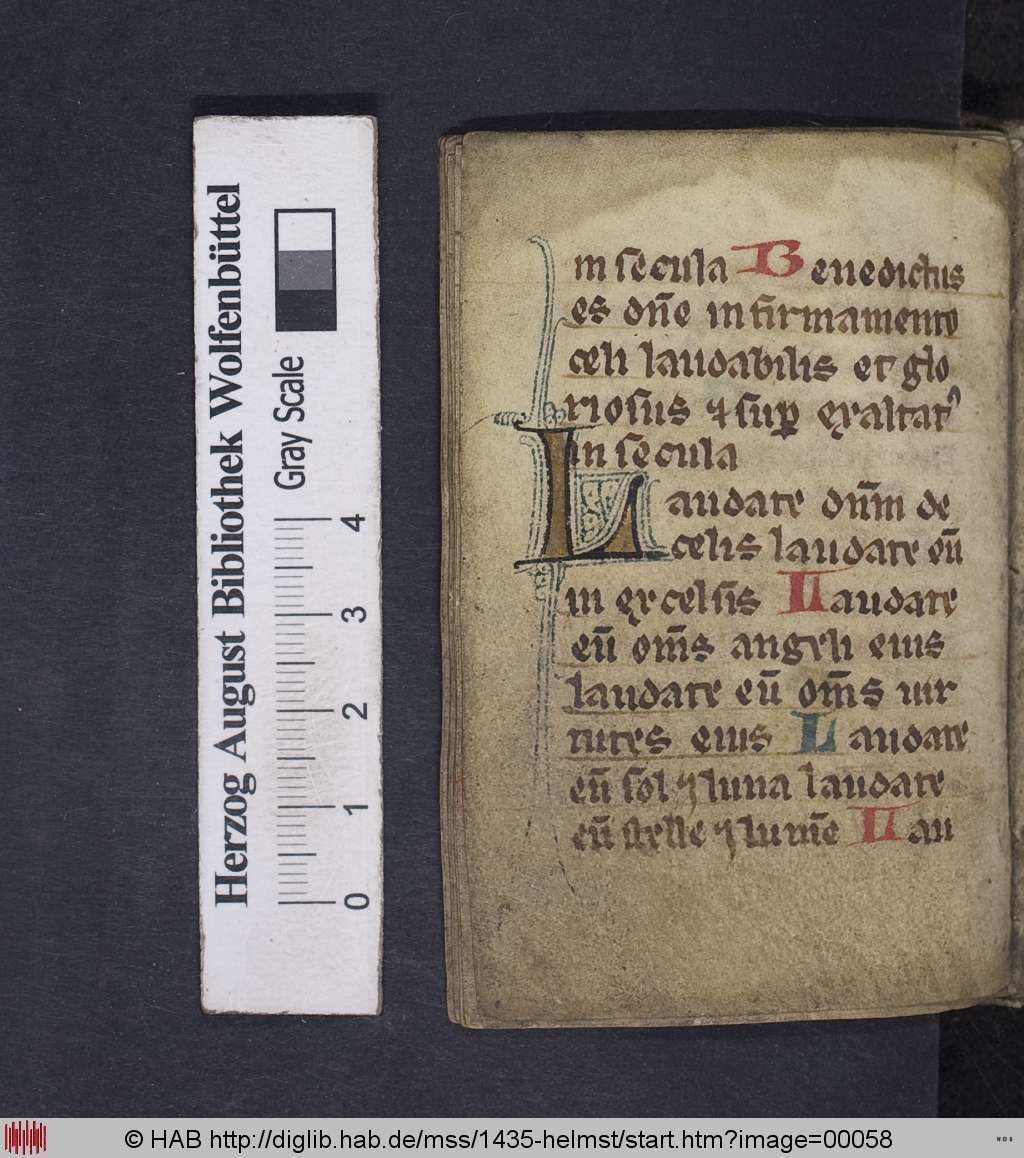 in secula Benedictus
es dñe in firmamento
celi laudabilis et glo
riosus ⁊ sup exaltat⁹
in secula
Laudate dnm̄ de
celis laudate eū
in excelsis Laudate
eū om̄s angeli eius
laudate eū om̄s uir
tutes eius Laudate
eū sol ⁊ luna laudate
eū stelle ⁊ lum̄e Lau
Herzog August Bibliothek Wolfenbüttel
Gray Scale
0 1 2 3 4
© HAB http://diglib.hab.de/mss/1435-helmst/start.htm?image=00058